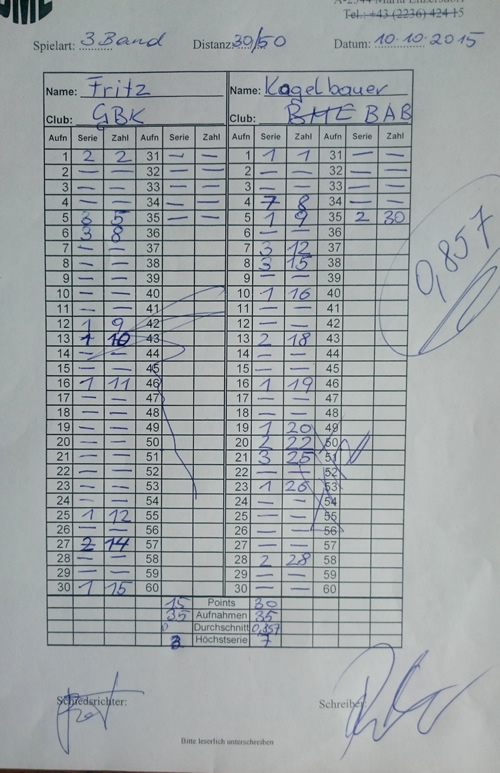 Tel.: +43 (2236) 424 15
Spielart: 3 Band Distanz: 30/50 Datum: 10.10.2015
Name: Fritz Name: Kogelbauer
Club: GBK Club: BAB
Aufn Serie Zahl Aufn Serie Zahl Aufn Serie Zahl Aufn Serie Zahl
1 2 2 31 — — 1 1 1 31 — —
2 — — 32 — — 2 — — 32 — —
3 — — 33 — — 3 — — 33 — —
4 — — 34 — — 4 7 8 34 — —
5 3 5 35 — — 5 1 9 35 2 30
6 3 8 36 6 — — 36
7 — — 37 7 3 12 37
8 — — 38 8 3 15 38
9 — — 39 9 — — 39
10 — — 40 10 1 16 40
11 — — 41 11 — — 41
12 1 9 42 12 — — 42
13 1 10 43 13 2 18 43
14 — — 44 14 — — 44
15 — — 45 15 — — 45
16 1 11 46 16 1 19 46
17 — — 47 17 — — 47
18 — — 48 18 — — 48
19 — — 49 19 1 20 49
20 — — 50 20 2 22 50
21 — — 51 21 3 25 51
22 — — 52 22 — — 52
23 — — 53 23 1 26 53
24 — — 54 24 — — 54
25 1 12 55 25 — — 55
26 — — 56 26 — — 56
27 2 14 57 27 — — 57
28 — — 58 28 2 28 58
29 — — 59 29 — — 59
30 1 15 60 30 — — 60
15 Points 30
35 Aufnahmen 35
Durchschnitt 0,857
3 Höchstserie 7
0,857
Schiedsrichter: Schreiber:
Bitte leserlich unterschreiben